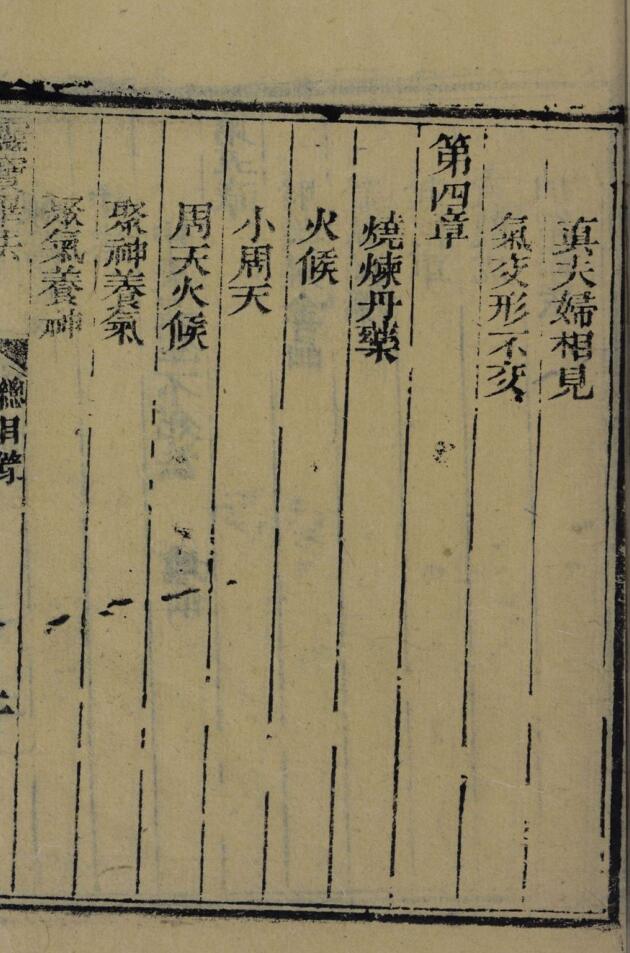 真夫婦相見
氣交形不交
第四章
燒煉丹藥
火候
小周天
周天火候
聚神養氣
聚氣養神
總目錄